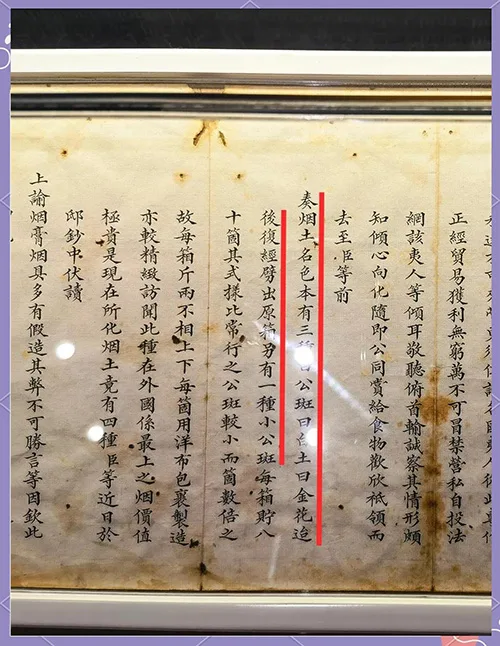 正經貿易獲利無窮萬不可冒禁營私自投法
網該夷人等傾耳敬聽俯首輸誠察其情形頗
知傾心向化隨即公同賞給食物歡欣祗領而
去至臣等前
奏烟土名色本有三種曰公班曰白土曰金花迨
後復經劈出原箱另有一種小公班每箱貯八
十箇其式樣比常行之公班較小而箇數倍之
故每箱斤兩不相上下每箇用洋布包裹製造
亦較精緻訪聞此種在外國係最上之烟價值
極貴是現在所化烟土竟有四種臣等近日於
邸鈔中伏讀
上諭烟膏烟具多有假造其弊不可勝言等因欽此